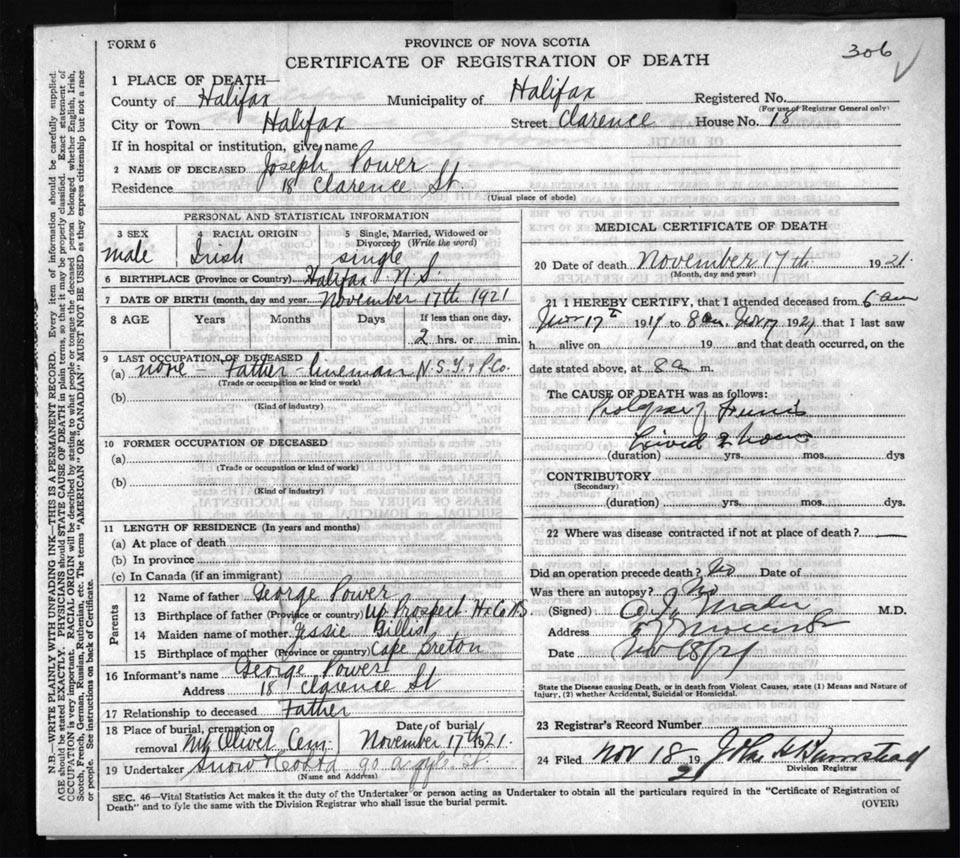 FORM 6
PROVINCE OF NOVA SCOTIA
306
CERTIFICATE OF REGISTRATION OF DEATH
1 PLACE OF DEATH—
County of Halifax Municipality of Halifax Registered No.
(For use of Registrar General only)
City or Town Halifax Street Clarence House No. 18
If in hospital or institution, give name
2 NAME OF DECEASED Joseph Power
Residence 18 Clarence St.
(Usual place of abode)
PERSONAL AND STATISTICAL INFORMATION
3 SEX 4 RACIAL ORIGIN 5 Single, Married, Widowed or Divorced (Write the word)
male Irish single
6 BIRTHPLACE (Province or Country) Halifax N.S.
7 DATE OF BIRTH (month, day and year) November 17th 1921
8 AGE Years Months Days If less than one day,
2 hrs. or min.
9 LAST OCCUPATION OF DECEASED
(a) none - Father - lineman N.S.T. & P Co.
(Trade or occupation or kind of work)
(b)
(Kind of industry)
10 FORMER OCCUPATION OF DECEASED
(a)
(Trade or occupation or kind of work)
(b)
(Kind of industry)
11 LENGTH OF RESIDENCE (In years and months)
(a) At place of death
(b) In province
(c) In Canada (if an immigrant)
Parents
12 Name of father George Power
13 Birthplace of father (Province or country) Up Prospect Hx Co NS
14 Maiden name of mother Jessie Gillis
15 Birthplace of mother (Province or country) Cape Breton
16 Informant's name George Power
Address 18 Clarence St
17 Relationship to deceased Father
18 Place of burial, cremation or removal Mt Olivet Cem. Date of burial November 17th 1921.
19 Undertaker Snow & Co Ltd 90 Argyle St.
(Name and Address)
MEDICAL CERTIFICATE OF DEATH
20 Date of death November 17th 1921.
(Month, day and year)
21 I HEREBY CERTIFY, that I attended deceased from 6 am
Nov 17 19 to 8 am Nov 17 1921 that I last saw
h alive on 19 and that death occurred, on the
date stated above, at 8 a m.
The CAUSE OF DEATH was as follows:
Prolapse of Funis
Lived 2 hours
(duration) yrs. mos. dys
CONTRIBUTORY
(Secondary)
(duration) yrs. mos. dys.
22 Where was disease contracted if not at place of death?
Did an operation precede death? No Date of
Was there an autopsy? No
(Signed) M.D.
Address
Date Nov 18/21
State the Disease causing Death, or in death from Violent Causes, state (1) Means and Nature of
Injury, (2) whether Accidental, Suicidal or Homicidal.
23 Registrar's Record Number
24 Filed Nov 18 192
Division Registrar
SEC. 46—Vital Statistics Act makes it the duty of the Undertaker or person acting as Undertaker to obtain all the particulars required in the "Certificate of Registration of
Death" and to fyle the same with the Division Registrar who shall issue the burial permit.
(OVER)
N.B.—WRITE PLAINLY WITH UNFADING INK—THIS IS A PERMANENT RECORD. Every item of information should be carefully supplied.
AGE should be stated EXACTLY. PHYSICIANS should STATE CAUSE OF DEATH in plain terms, so that it may be properly classified. Exact statement of
OCCUPATION is very important. RACIAL ORIGIN will be described by stating to what people or tongue the deceased person belonged whether English, Irish,
Scotch, French, German, Russian, Ruthenian, etc. The terms "AMERICAN" OR "CANADIAN" MUST NOT BE USED as they express citizenship but not a race
or people. See instructions on back of Certificate.